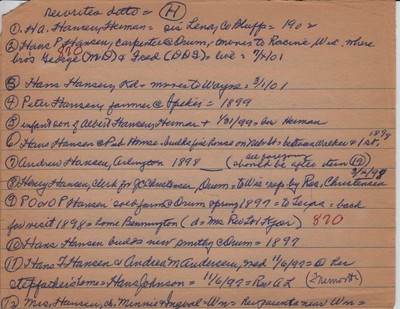 rewrites data = (H)
① Ha. Hansen, Herman = sis Lena, Co Bluffs = 1902
② Hans P Hansen, carpenter @ Orum, moves to Racine Wisc. where
bros George (MD) & Fred (DDS) = live = 7/1/01
870
③ Hans Hansen, Kd = moves to Wayne = 3/1/01
④ Peter Hansen, farmer @ Spiker = 1899
⑤ infant son of Albert Hansen, Herman + 1/31/99 = bur Herman
⑥ Hans Hansen @ Pab House = builds fine house on Neb St = between Walker & 1st, 1899
⑦ Andrew Hansen, Arlington 1898
(should be after item 12)
⑧ Henry Hansen, clerk for JC Christensen, Orum = to Wis resp by Rev. Christensen 3/2/98
⑨ PO OO P Hansen farm @ Orum spring 1899 = to = back
for visit 1898 = home Bennington (d = Mrs Rev) 870
⑩ Hans Hansen builds new smithy @ Orum = 1897
⑪ Hans F Hansen & Andrea M Andersen, med 11/6/97 = @ her
stepfathers home = Hans Johnson = 11/6/97 = Rev A L (2 nemoth)
⑫ Mrs. Hansen, ch. Minnie & Ingvol = Wm = her parents near Wm =